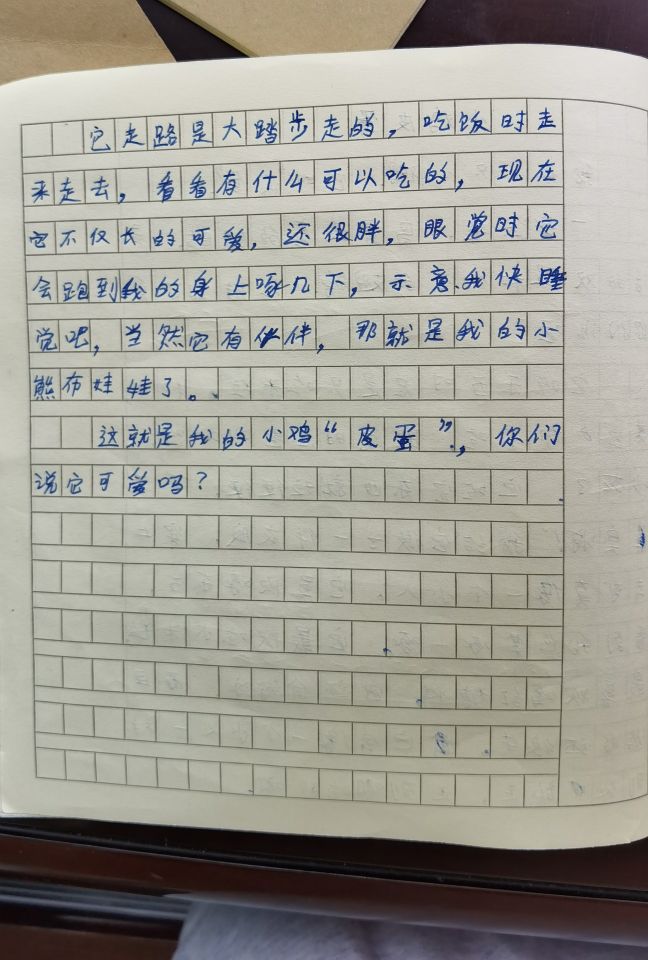 它走路是大踏步走的，吃饭时走
来走去，看看有什么可以吃的，现在
它不仅长的可爱，还很胖，眼觉时它
会跑到我的身上啄几下，示意我快睡
觉吧，当然它有伙伴，那就是我的小
熊布娃娃了。
这就是我的小鸡“皮蛋”，你们
说它可爱吗？